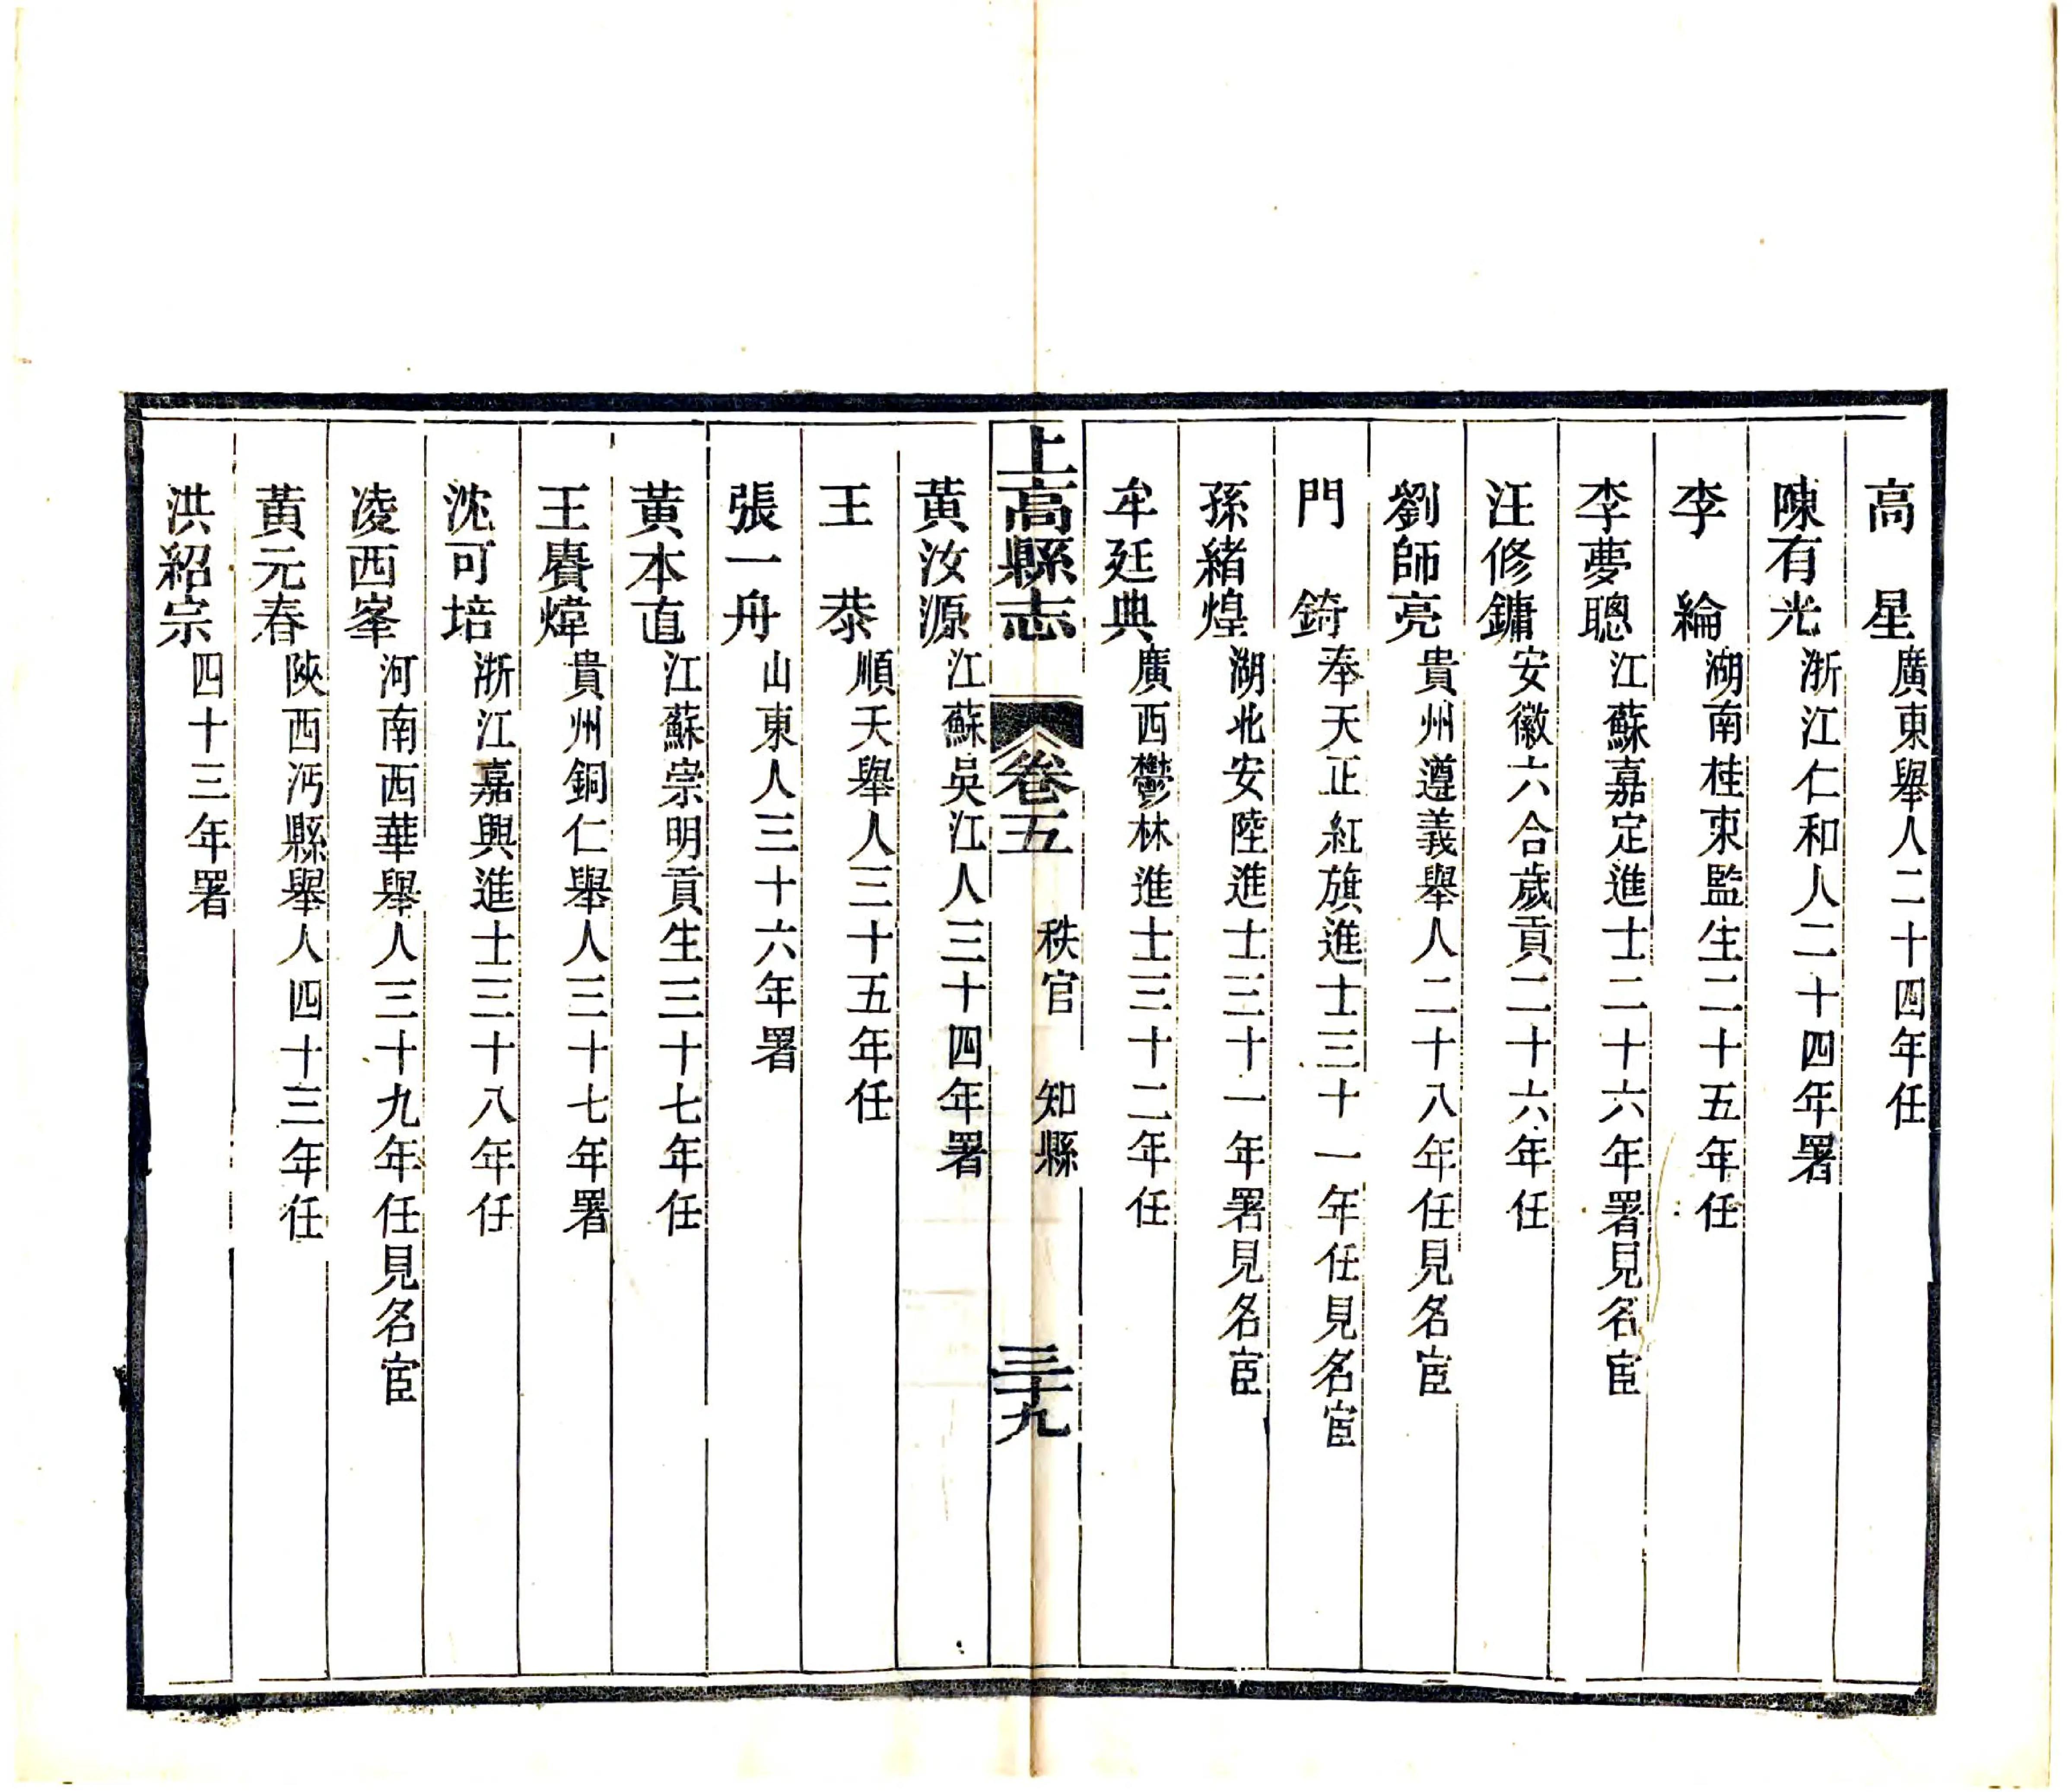 高　星廣東舉人二十四年任
陳有光浙江仁和人二十四年署
李　綸湖南桂東監生二十五年任
李夢聰江蘇嘉定進士二十六年署見名宦
汪修鏞安徽六合歲貢二十六年任
劉師亮貴州遵義舉人二十八年任見名宦
門　錡奉天正紅旗進士三十一年任見名宦
孫緒煌湖北安陸進士三十一年署見名宦
牟廷典廣西鬱林進士三十二年任
上高縣志　卷五　秩官　知縣　三十九
黃汝源江蘇吳江人三十四年署
王　恭順天舉人三十五年任
張一舟山東人三十六年署
黃本直江蘇崇明貢生三十七年任
王賡煒貴州銅仁舉人三十七年署
沈可培浙江嘉興進士三十八年任
凌西峯河南西華舉人三十九年任見名宦
黃元春陝西沔縣舉人四十三年任
洪紹宗四十三年署